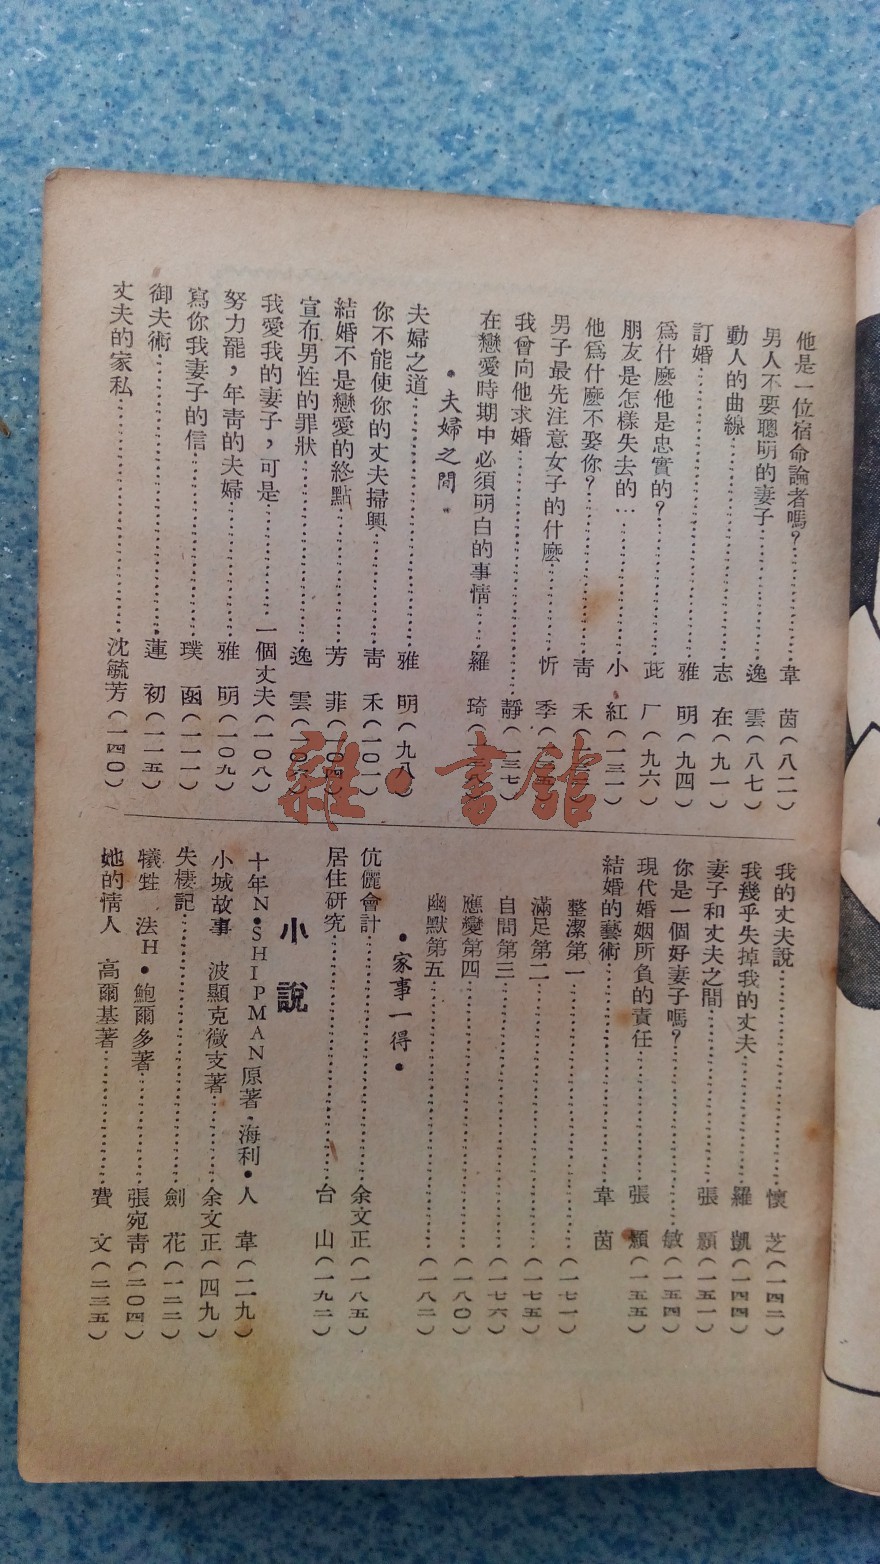 他是一位宿命論者嗎?……韋 茵(八二)
男人不要聰明的妻子……逸 雲(八七)
動人的曲線……志 在(九一)
訂婚……雅 明(九四)
爲什麽他是忠實的?……茈 厂(九六)
朋友是怎樣失去的……小 紅(一三一)
他爲什麽不娶你?……靑 禾
男子最先注意女子的什麽……忻 季
我曾向他求婚……靜(一三七)
在戀愛時期中必須明白的事情……羅 琦
•夫婦之間•
夫婦之道……雅 明(九八)
你不能使你的丈夫掃興……靑 禾(一〇一)
結婚不是戀愛的終點……芳 菲(一〇四)
宣布男性的罪狀……逸 雲
我愛我的妻子,可是……一個丈夫(一〇八)
努力罷,年靑的夫婦……雅 明(一〇九)
寫你我妻子的信……璞 函(一一一)
御夫術……蓮 初(一一五)
丈夫的家私……沈毓芳(一四〇)
我的丈夫說……懷 芝(一四二)
我幾乎失掉我的丈夫……羅 凱(一四四)
妻子和丈夫之間……張 顥(一五一)
你是一個好妻子嗎?……敏(一五四)
現代婚姻所負的責任……張 顥(一五五)
結婚的藝術……韋 茵
整潔第一……(一七一)
滿足第二……(一七五)
自問第三……(一七六)
應變第四……(一八〇)
幽默第五……(一八二)
•家事一得•
伉儷會計……余文正(一八五)
居住研究……台 山(一九二)
小說
十年N•SHIPMAN原著•海利•人 韋(二九)
小城故事 波顯克微支著……余文正(四九)
失棲記……劍 花(一二二)
犧牲 法H•鮑爾多著……張宛靑(二〇四)
她的情人 高爾基著……費 文(二三五)
雜•書館